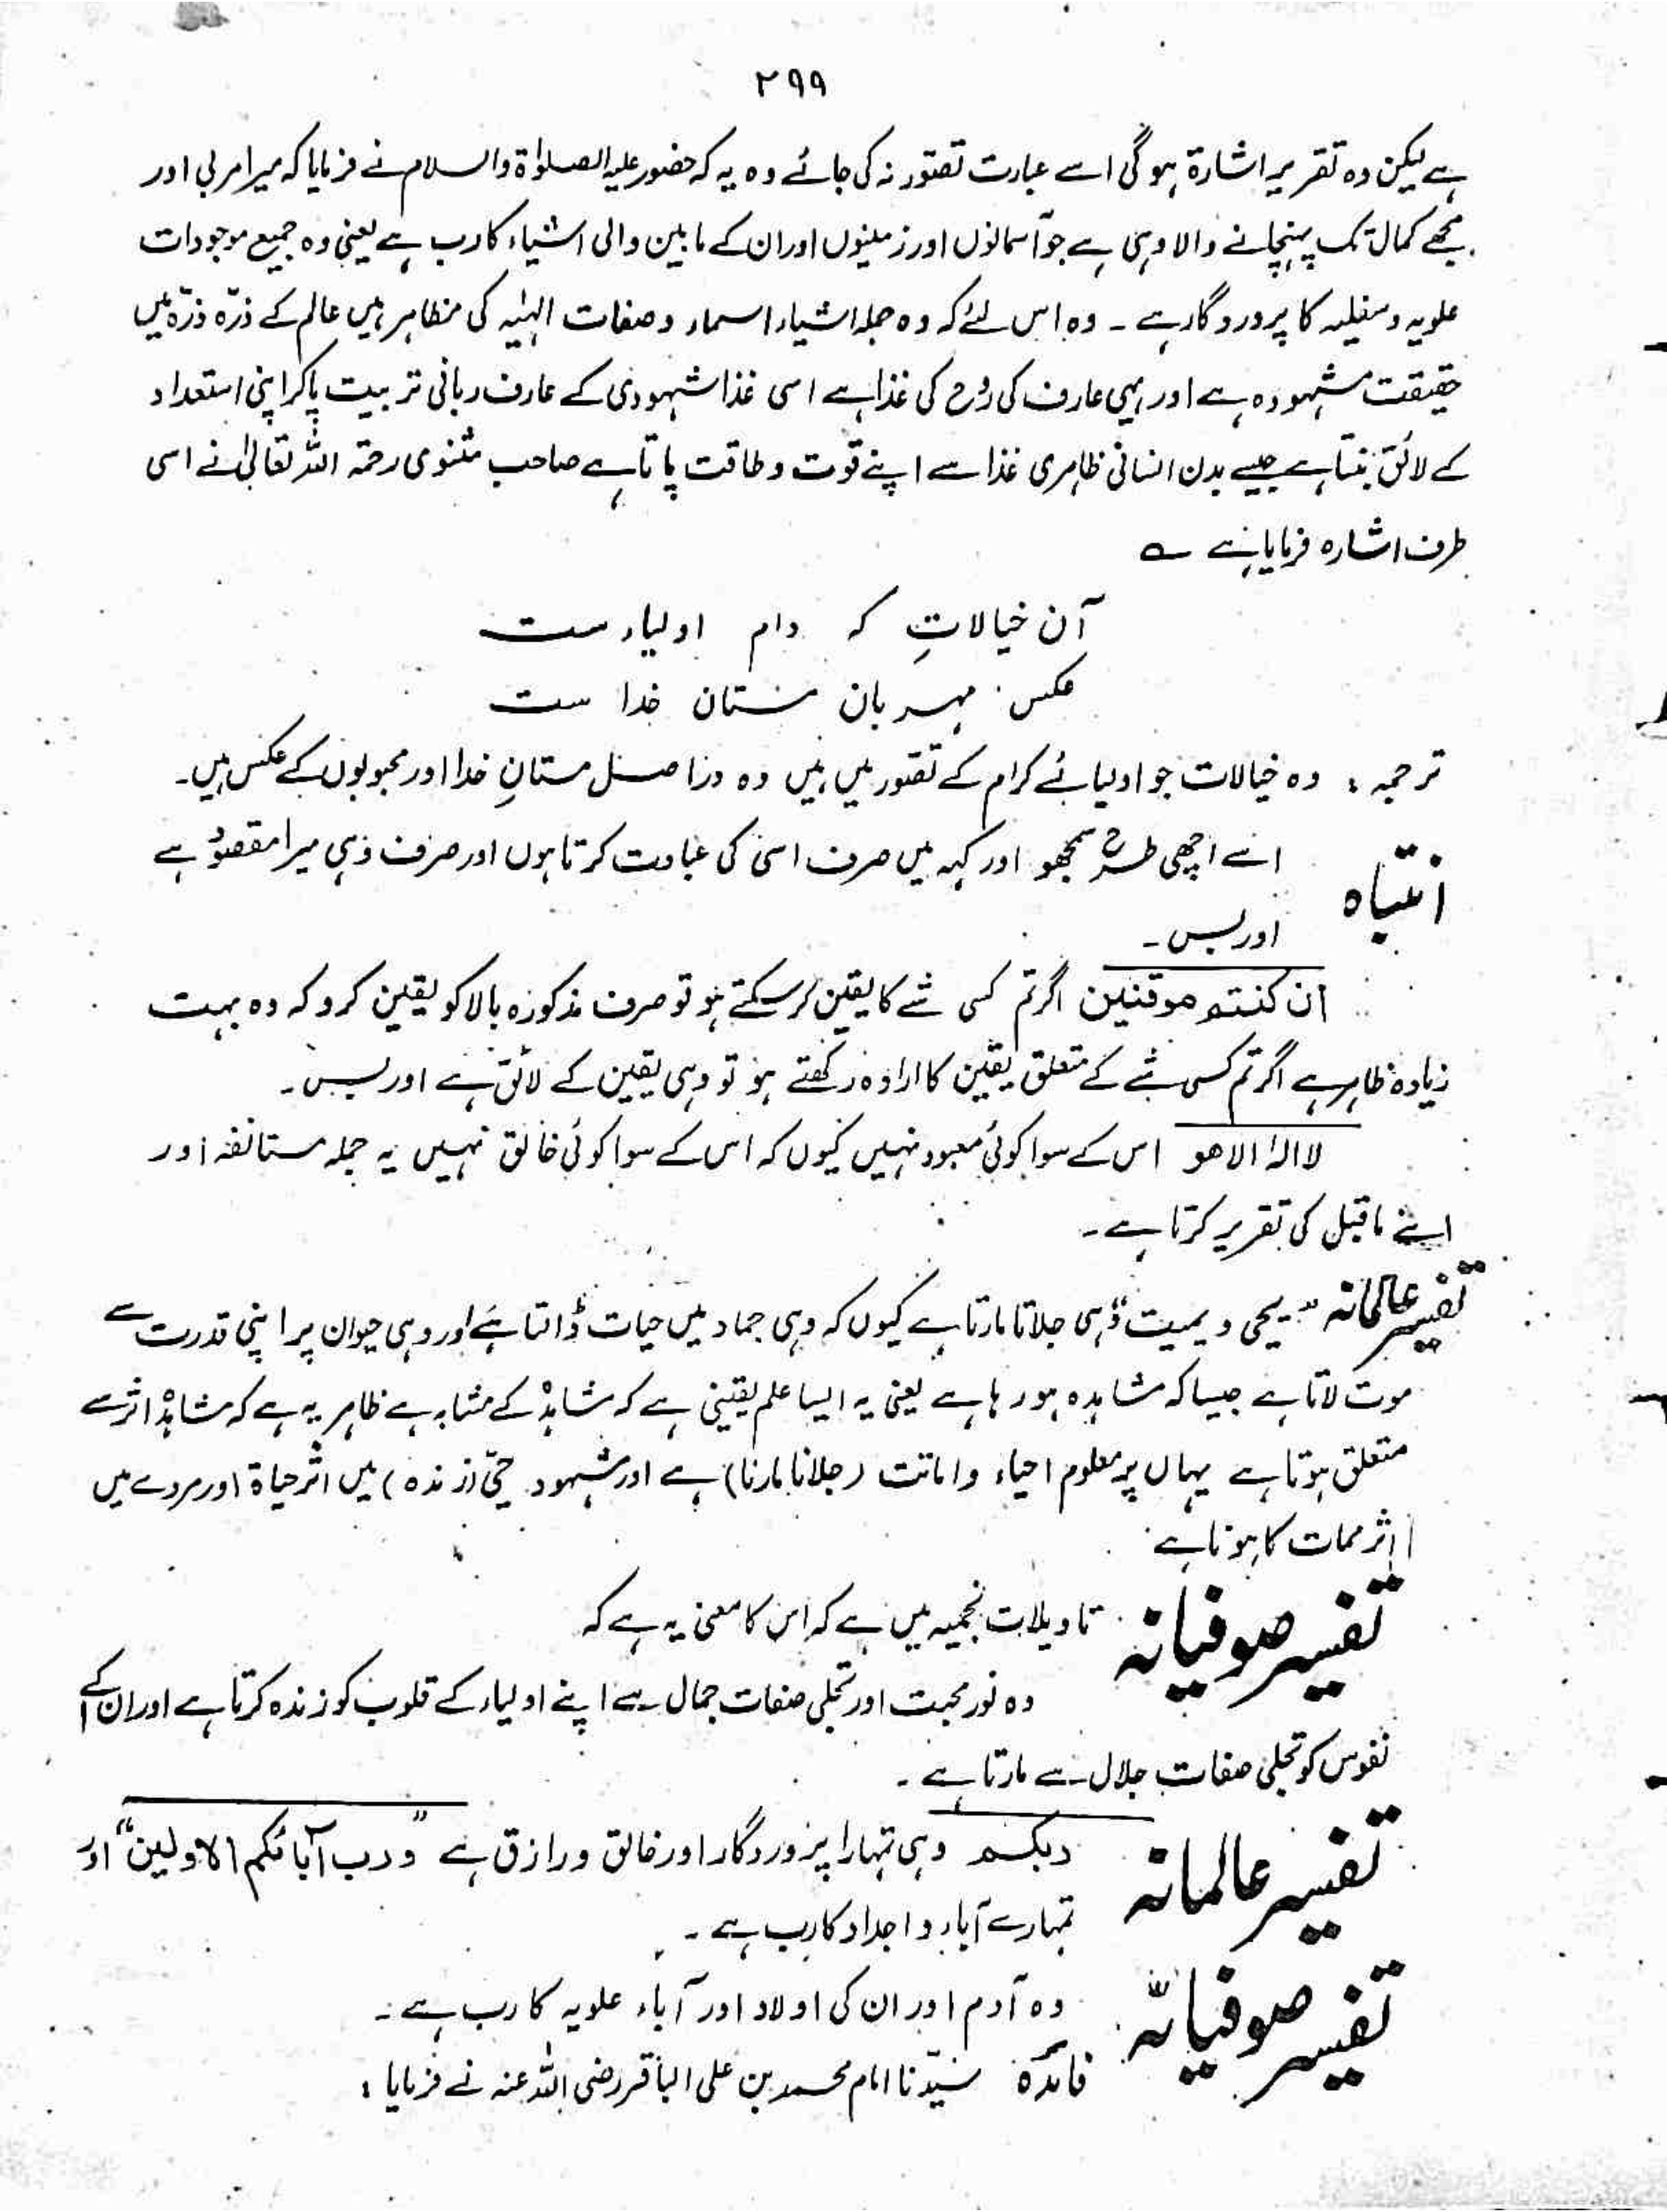 ۲۹۹
ہے لیکن وہ تقریر اشارۃ ہوگی اسے عبارت تصور نہ کی جائے وہ یہ کہ حضور علیہ الصلوٰۃ والسلام نے فرمایا کہ میرا مربی اور
مجھے کمال تک پہنچانے والا وہی ہے جو آسمانوں اور زمینوں اور ان کے مابین والی اشیاء کا رب ہے یعنی وہ جمیع موجودات
علویہ و سفلیہ کا پروردگار ہے ۔ وہ اس لئے کہ وہ جملہ اشیاء اسماء و صفات الہٰیہ کی مظاہر ہیں عالم کے ذرّہ ذرّہ میں
حقیقت مشہودہ ہے اور یہی عارف کی روح کی غذا ہے اسی غذا شہودی کے عارف ربانی تربیت پاکر اپنی استعداد
کے لائق بنتا ہے جیسے بدن انسانی ظاہری غذا سے اپنے قوت و طاقت پاتا ہے صاحب مثنوی رحمۃ اللہ تعالیٰ نے اسی
طرف اشارہ فرمایا ہے ؎
آن خیالاتِ کہ دام اولیاء ست
عکس مہربان ستان خدا ست
ترجمہ : وہ خیالات جو اولیائے کرام کے تصور میں ہیں وہ دراصل مستانِ خدا اور محبوبوں کے عکس ہیں۔
انتباہ
اسے اچھی طرح سمجھو اور کہہ میں صرف اسی کی عبادت کرتا ہوں اور صرف وہی میرا مقصود ہے
اور بس ۔
ان کنتم موقنین اگر تم کسی شے کا یقین کر سکتے ہو تو صرف مذکورہ بالا کو یقین کرو کہ وہ بہت
زیادہ ظاہر ہے اگر تم کسی شے کے متعلق یقین کا ارادہ رکھتے ہو تو وہی یقین کے لائق ہے اور بس ۔
لا الہٰ الا ھو اس کے سوا کوئی معبود نہیں کیوں کہ اس کے سوا کوئی خالق نہیں یہ جملہ مستانفہ اور
اپنے ماقبل کی تقریر کرتا ہے ۔
تفسیر عالمانہ "یحی و یمیت" وہی جلاتا مارتا ہے کیوں کہ وہی جماد میں حیات ڈالتا ہے اور وہی حیوان پر اپنی قدرت سے
موت لاتا ہے جیسا کہ مشاہدہ ہو رہا ہے یعنی یہ ایسا علم یقینی ہے کہ مشاہدہ کے مشابہ ہے ظاہر یہ ہے کہ مشاہدہ اثر سے
متعلق ہوتا ہے یہاں پر معلوم احیاء و اماتت (جلانا مارنا) ہے اور مشہود حیّ (زندہ) میں اثر حیاۃ اور مردے میں
اثر ممات کا ہونا ہے
تفسیر صوفیانہ
تاویلات نجمیہ میں ہے کہ اس کا معنی یہ ہے کہ
وہ نور محبت اور تجلی صفات جمال سے اپنے اولیاء کے قلوب کو زندہ کرتا ہے اور ان کے
نفوس کو تجلی صفات جلال سے مارتا ہے ۔
تفسیر عالمانہ
ربکم وہی تمہارا پروردگار اور خالق و رازق ہے "ورب آبائکم الاولین" اور
تمہارے آباء و اجداد کا رب ہے ۔
تفسیر صوفیانہ
وہ آدم اور ان کی اولاد اور آباء علویہ کا رب ہے ۔
فائدہ سیّدنا امام محمد بن علی الباقر رضی اللہ عنہ نے فرمایا :